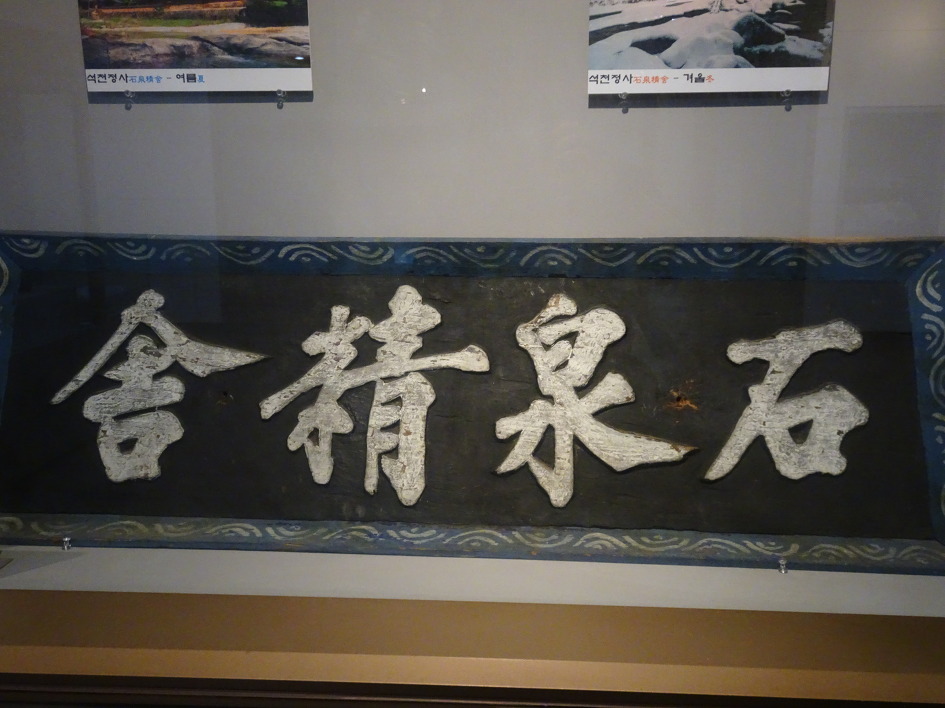 석천정사石泉精舍 - 여름夏
석천정사石泉精舍 - 겨울冬
石泉精舍